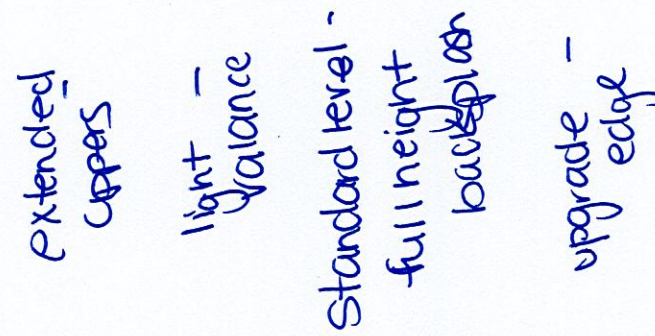 extended -
uppers
light -
valance
Standard level -
full height
backsplash
upgrade -
edge